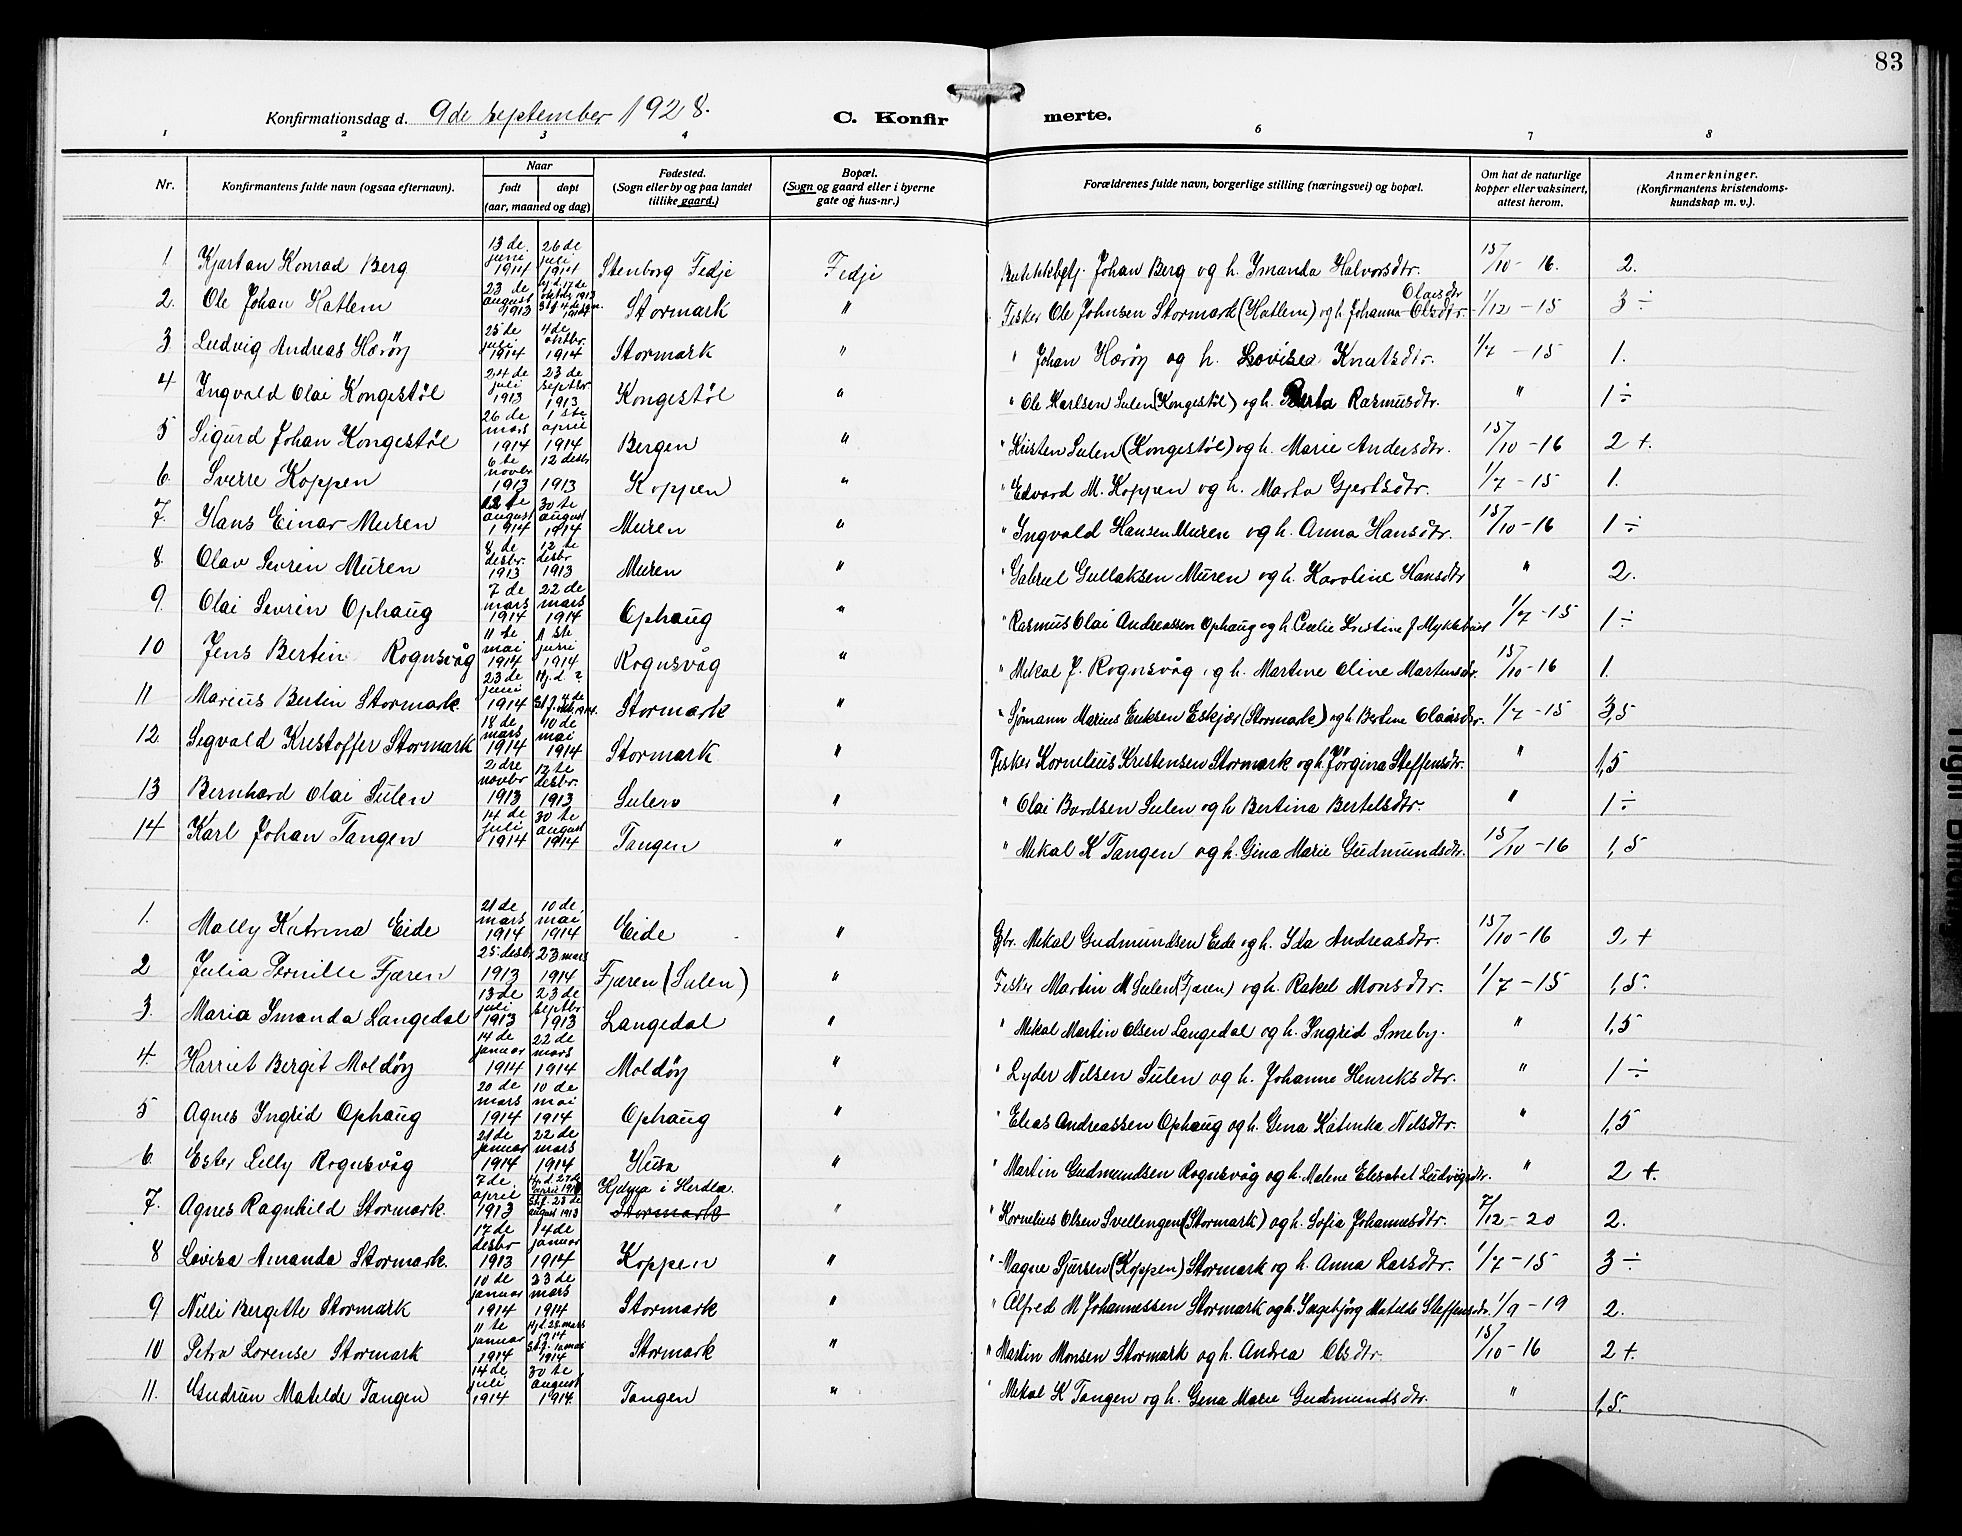 83
Konfirmationsdag d. 9de september 1928. C. Konfir merte.
1 2 3 4 6 7 8
Nr. Konfirmantens fulde navn (ogsaa efternavn). Naar født døpt (aar, maaned og dag) Fødested. (Sogn eller by og paa landet tillike gaard.) Bopæl. (Sogn og gaard eller i byerne gate og hus-nr.) Forældrenes fulde navn, borgerlige stilling (næringsvei) og bopæl. Om hat de naturlige kopper eller vaksinert, attest herom. Anmerkninger. (Konfirmantens kristendoms-kundskap m. v.).
1. Kjartan Konrad Berg 13 de juni 1914 26 de juli 1914 Stenborg Fedje Fedje Johan Berg og h. Imanda Halvorsdtr. 15/10 - 16. 2.
2. Ole Johan Hatlem 23 de august 1913 Hj.d. 17 de oktbr 1913 Stormark " Fisker Ole Johnsen Stormark (Hatlem) og h. Johanna Olsdtr. Olaisdtr 1/12 - 15 3 ÷
3. Ludvig Andreas Hærøy 25 de juli 1914 4 de oktbr. 1914 Stormark " " Johan Hærøy og h. Lovisea Knutsdtr. 1/7 - 15 1.
4 Ingvald Olai Kongestøl 24 de juli 1913 23 de septbr 1913 Kongestøl " " Ole Karlsen Sulen (Kongestøl) og h. Berta Rasmusdtr. " 1 ÷
5 Sigurd Johan Kongestøl 26 de mars 1914 1 ste april 1914 Bergen " " Kristen Sulen (Kongestøl) og h. Marie Andersdtr. 15/10 - 16 2 +.
6. Sverre Koppen 6 te novbr 1913 12 desbr 1913 Koppen " " Edvard M. Koppen og h. Marta Gjertsdtr. 1/7 - 15 1.
7. Hans Einar Muren 12 te august 1914 30 te august 1914 Muren " " Ingvald Hansen Muren og h. Anna Hansdtr. 15/10 - 16 1 ÷
8. Olav Sevrin Muren 8 de desbr. 1913 12 te desbr 1913 Muren " " Gabriel Gullaksen Muren og h. Karoline Hansdtr " 2.
9. Olai Sevrin Ophaug 7 de mars 1914 22 de mars 1914 Ophaug " " Rasmus Olai Andreassen Ophaug og h. Cecelie Kristine J Myklebust 1/7 - 15 1 ÷
10 Jens Bertin Rognsvåg 11 te mai 1914 1 ste juni 1914 Rognsvåg " " Mekal J. Rognsvåg og h. Martine Oline Martensdtr. 15/10 - 16 1.
11 Marius Bertin Stormark. 23 de juni 1914 Hj. d. ? Stormark " " Sjømann Marius Eriksen Eskjær (Stormark) og h. Bertine Olaisdtr. 1/7 - 15 3,5
12. Segvald Kristoffer Stormark 18 de mars 1914 10 de mai 1914 Stormark " Fisker Kornelius Kristensen Stormark og h. Jørgina Steffensdtr. " 1,5
13 Bernhard Olai Sulen 2 dre novbr 1913 12 te desbr. 1913 Sulen " " Olai Bordsen Sulen og h Bertina Bertelsdtr. " 1 ÷
14 Karl Johan Tangen 14 de juli 1914 30 te august 1914 Tangen " " Mekal K Tangen og h. Gina Marie Gudmundsdtr. 15/10 - 16 1,5
1. Molly Katrina Eide 21 de mars 1914 10 de mai 1914 Eide " Gbr. Mekal Gudmundsen Eide og h. Ida Andreasdtr. 15/10 - 16 2 +
2 Julia Pernille Fjæren 25 desbr 1913 23 mars 1914 Fjæren (Sulen) " Fisker Martin M Sulen (Fjæren) og h. Rakel Monsdtr. 1/7 - 15 1,5.
3. Maria Imanda Langedal 13 de juli 1913 23 de septbr 1913 Langedal " " Mekal Martin Olsen Langedal og h. Ingrid Smeby. " 1,5
4. Harriet Bergit Moldøy 14 de januar 1914 22 de mars 1914 Moldøy " " Lyder Nilsen Sulen og h. Johanne Henriksdtr. " 1 ÷
5 Agnes Ingrid Ophaug 20 de mars 1914 10 de mai 1914 Ophaug " " Elias Andreassen Ophaug og h. Gina Katinka Nilsdtr. " 1,5
6. Ester Lilly Rognsvåg 21 de januar 1914 22 de mars 1914 Husa " " Martin Gudmundsen Rognsvåg og h. Malene Elesabet Ludvigsdtr. " 2 +.
7. Agnes Ragnhild Stormark. 7 de april 1913 august 1913 i Herdla. Stormark " " Kornelius Olsen Svellingen (Stormark) og h. Sofia Johannesdtr. 7/12 - 20 2.
8 Lovisa Amanda Stormark. 17 de desbr 1913 14 de januar 1914 Koppen " " Magne Sjursen (Koppen) Stormark og h. Anna Larsdtr. 1/7 - 15 3 ÷
9 Nilli Bergitte Stormark 10 de januar 1914 23 de mars 1914 Stormark " " Alfred M Johannessen Stormark og h. Ingebjørg Matilde Steffensdtr. 1/9 - 19 2.
10 Petra Lorense Stormark 11 te januar 1914 Hj.d. 28. mars 1914 St.f. 10 mai 1914 Stormark " " Martin Monsen Stormark og h. Andrea Olsdtr. 15/10 - 16 2 +.
11. Gudrun Matilde Tangen 14 de juli 1914 30 te august 1914 Tangen " " Mekal K Tangen og h. Gina Marie Gudmundsdtr. " 1,5.